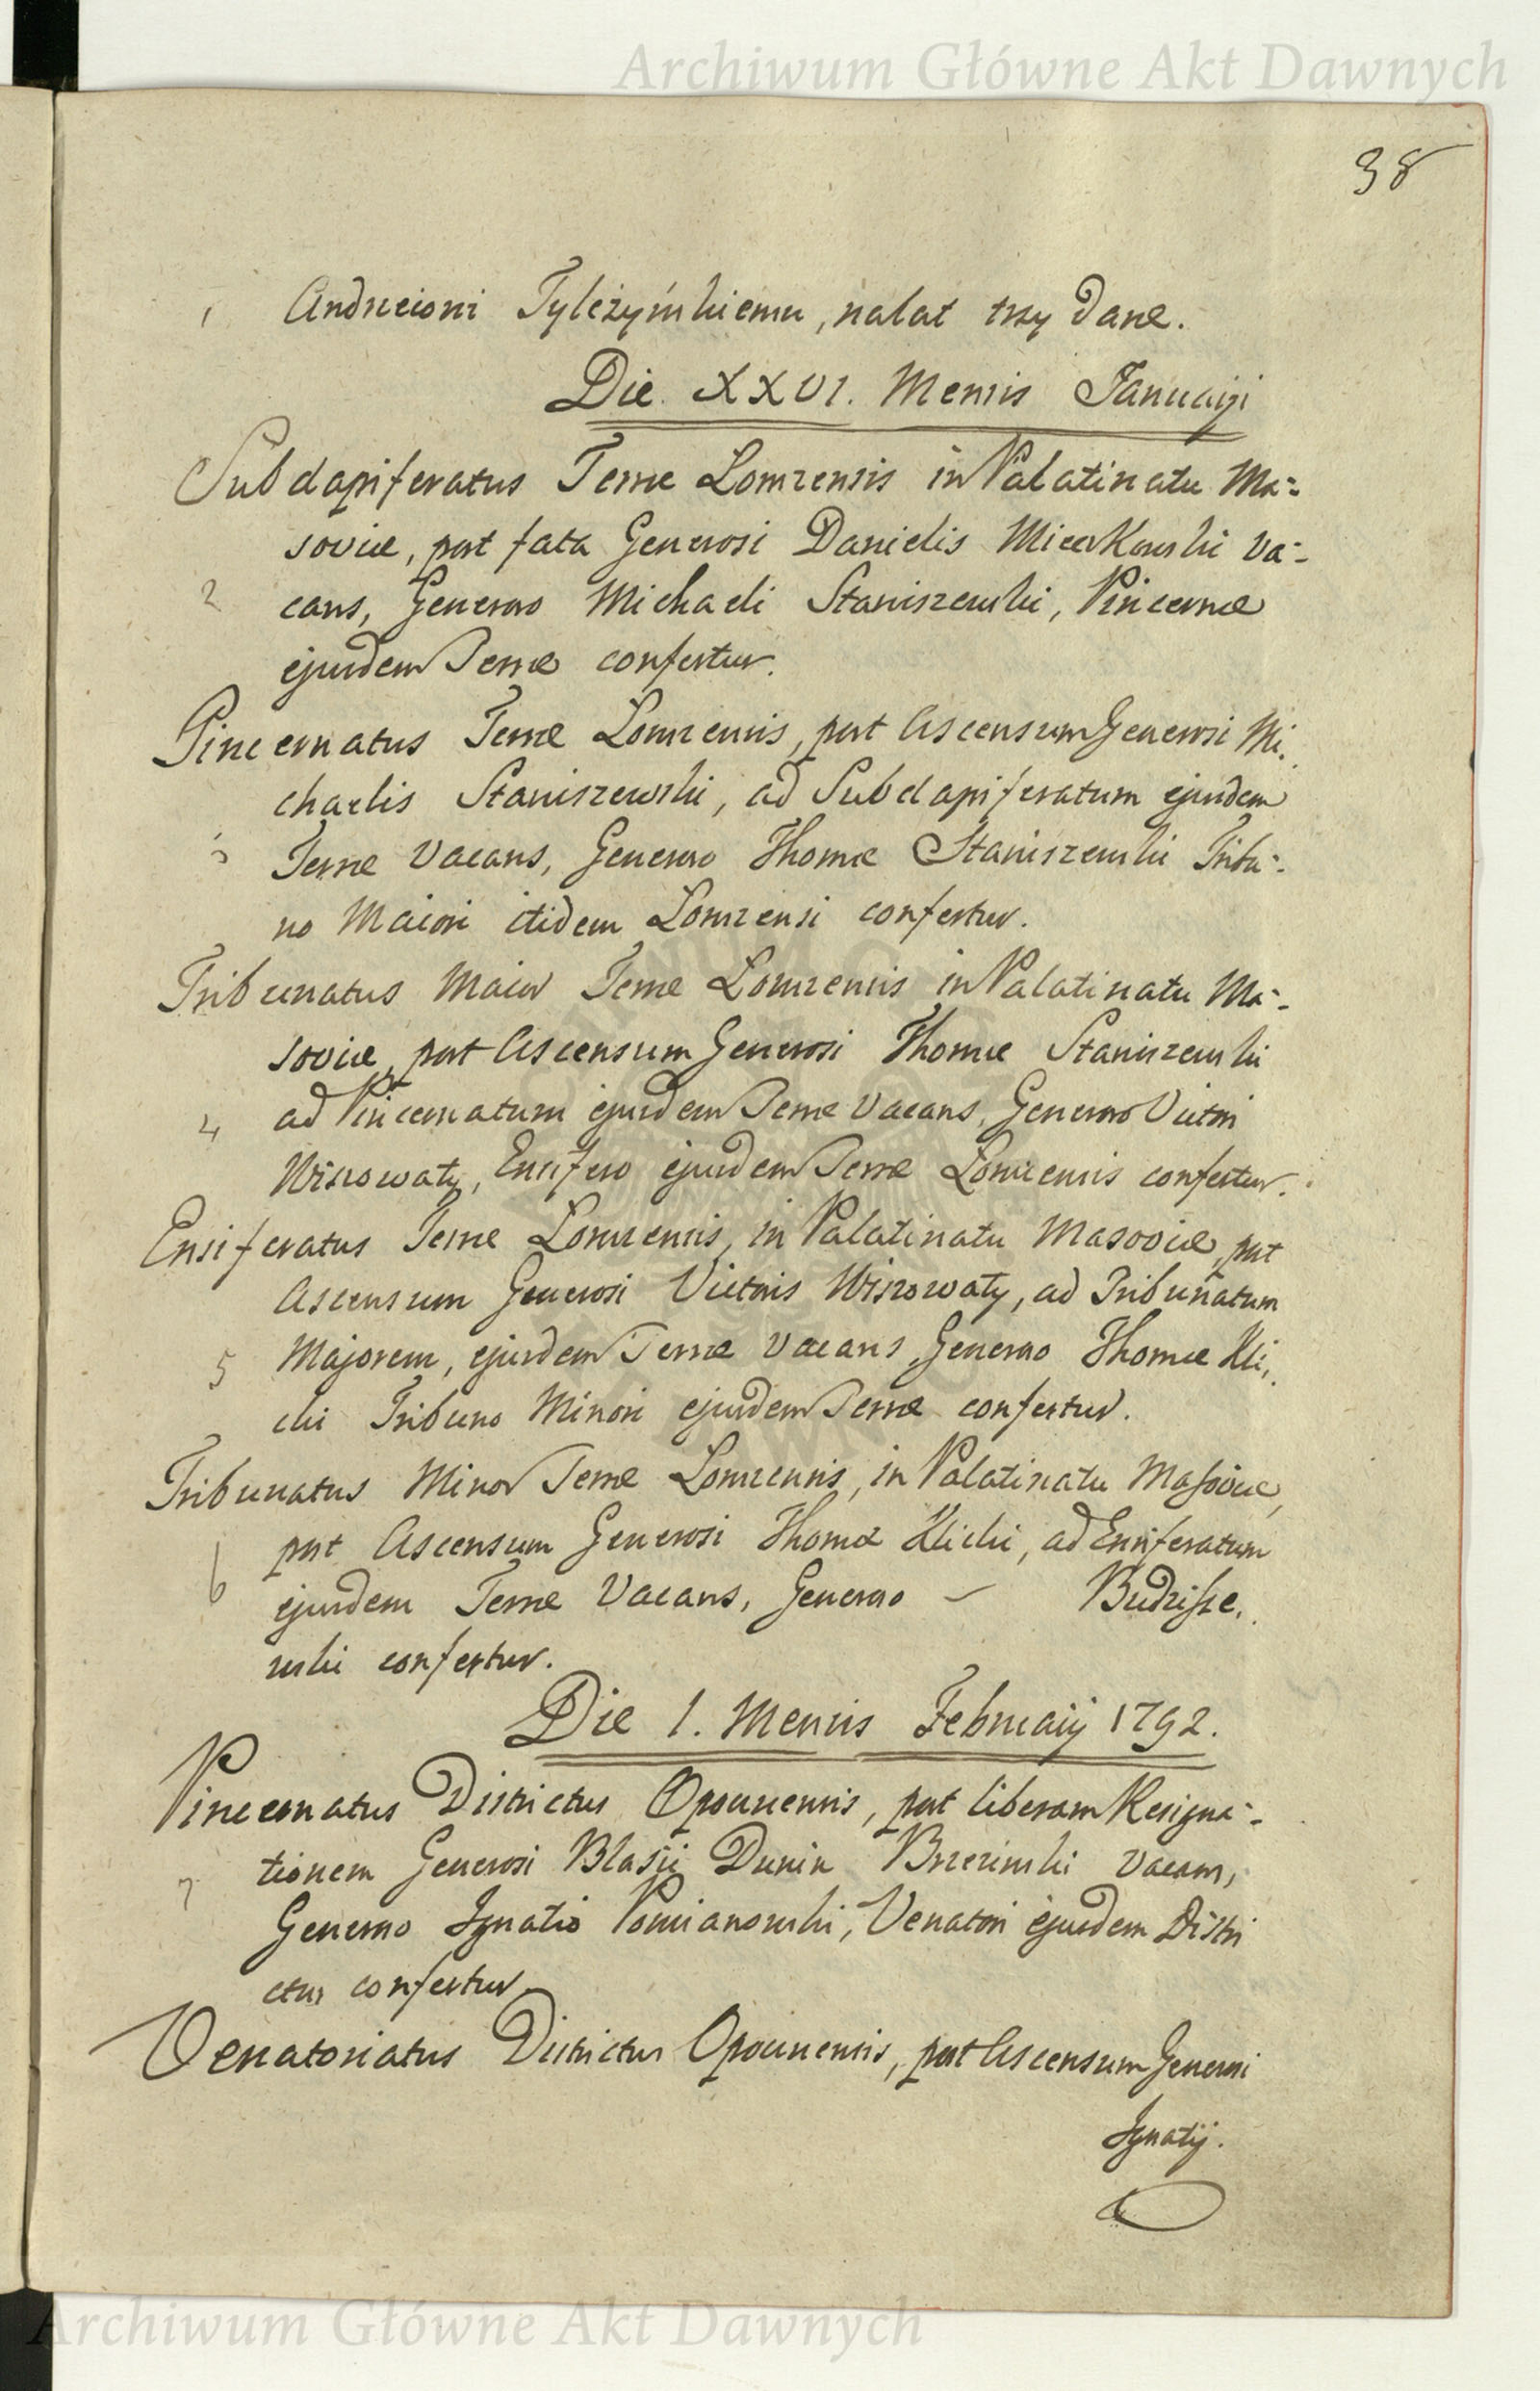 Archiwum Główne Akt Dawnych
38
1 Andrzeiowi Tyleżyńskiemu, nalat trzy dane.
Die XXVI. Mensis Januarij
Subdapiferatus Terræ Lomzensis in Palatinatu Ma=
soviæ, post fata Generosi Danielis Mieczkowski va=
2 cans, Generoso Michaeli Staniszewski, Pincernæ
ejusdem Terræ confertur.
Pincernatus Terræ Lomzensis, post Ascensum Generosi Mi,
chaelis Staniszewski, ad Subdapiferatum ejusdem
3 Terræ Vacans, Generoso Thomæ Staniszewski Tribu=
no Maiori itidem Lomzensi confertur.
Tribunatus Maior Terræ Lomzensis in Palatinatu Ma=
soviæ, post Ascensum Generosi Thomæ Staniszewski
4 ad Pincernatum ejusdem Terræ Vacans, Generoso Victori
Wiszowaty, Ensifero ejusdem Terræ Lomzensis confertur.
Ensiferatus Terræ Lomzensis, in Palatinatu Masoviæ, post
Ascensum Generosi Victoris Wiszowaty, ad Tribunatum
5 Majorem, ejusdem Terræ Vacans, Generoso Thomæ Kli,
cki Tribuno Minori ejusdem Terræ confertur.
Tribunatus Minor Terræ Lomzensis, in Palatinatu Massoviæ,
post Ascensum Generosi Thomæ Klicki, ad Ensiferatum
6 ejusdem Terræ Vacans, Generoso — Budzisze,
wski confertur.
Die 1. Mensis Februarij 1792.
Pincernatus Districtus Opocznensis, post liberam Resigna=
tionem Generosi Blasij Dunin Brzezinski vacans,
7 Generoso Ignatio Pomianowski, Venatori ejusdem Distri
ctus confertur.
Venatoriatus Districtus Opocznensis, post Ascensum Generosi
Ignatij.
Archiwum Główne Akt Dawnych